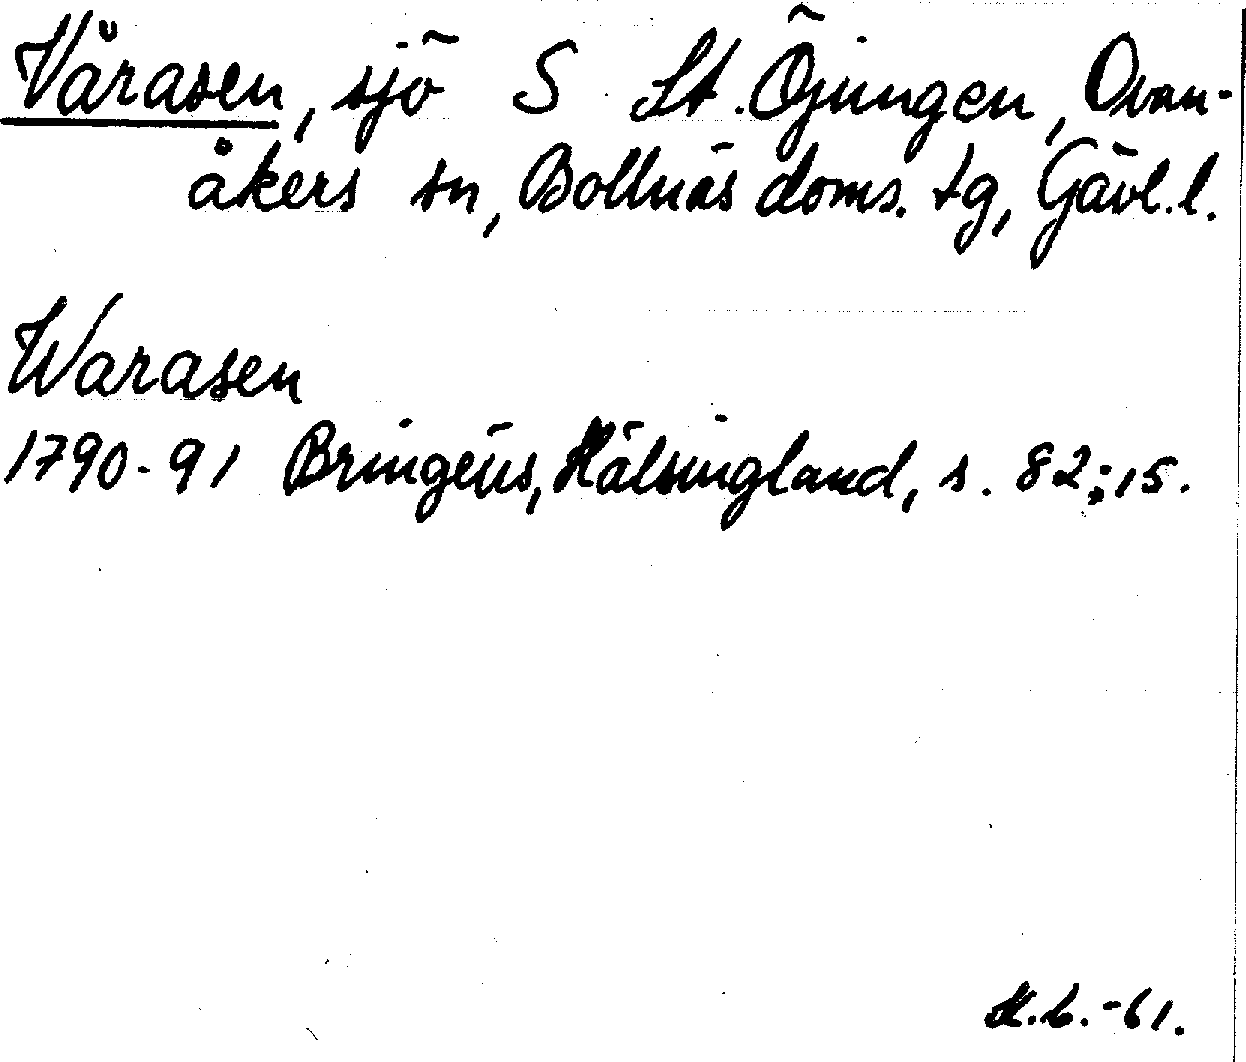 Vårasen, sjö S St. Öjungen, Ovan-
åkers sn, Bollnäs doms. tg, Gävl. l.
Warasen
1790-91 Bringéus, Hälsingland, s. 82:15.
-61.